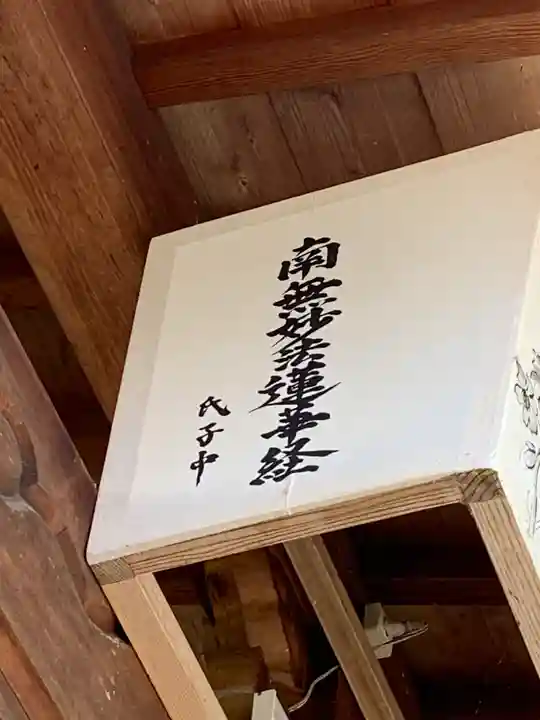 南無妙法蓮華経
氏子中